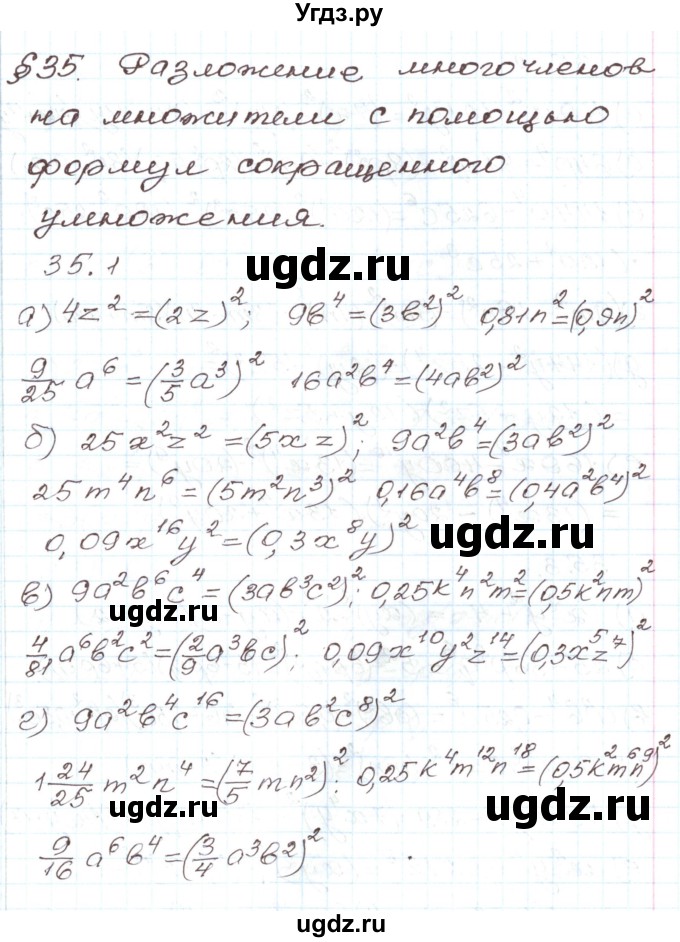 Угдз.ру
§35. Разложение многочленов
на множители с помощью
формул сокращенного
умножения.
35.1
ugdz.ru
а) 4z² = (2z)²; 9b⁴ = (3b²)² 0,81n² = (0,9n)²
9/25 a⁶ = (3/5 a³)² 16a²b⁴ = (4ab²)²
б) 25x²z² = (5xz)²; 9a²b⁴ = (3ab²)²
25m⁴n⁶ = (5m²n³)² 0,16a⁴b⁸ = (0,4a²b⁴)²
0,09x¹⁶y² = (0,3x⁸y)²
ugdz.ru
в) 9a²b⁶c⁴ = (3ab³c²)²; 0,25k⁴n²m² = (0,5k²nm)²
ugdz.ru
4/81 a⁶b²c² = (2/9 a³bc)²; 0,09x¹⁰y²z¹⁴ = (0,3xz⁵⁷)²
г) 9a²b⁴c¹⁶ = (3ab²c⁸)²
1 24/25 m²n⁴ = (7/5 mn²)²; 0,25k⁴m¹²n¹⁸ = (0,5k²m⁶n⁹)²
ugdz.ru
ugdz.ru
9/16 a⁶b⁴ = (3/4 a³b²)²
ugdz.ru